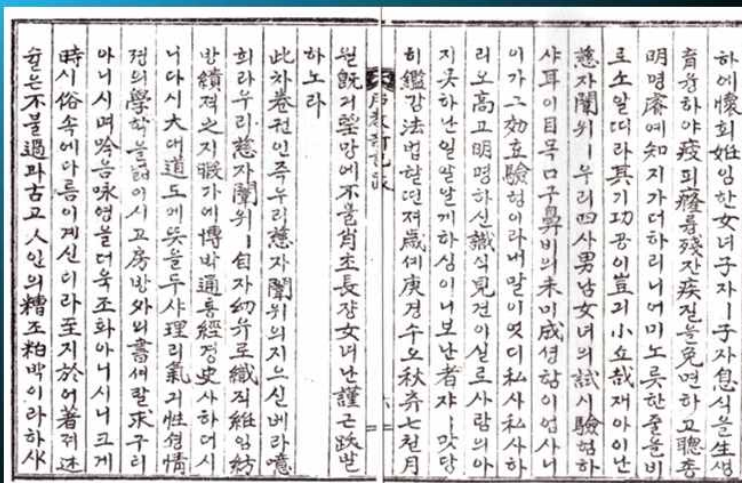 하에懷회姙임한女녀子자ㅣ子자息식을生생
育육하야疲피癃륭殘잔疾질을免면하고聰총
明명睿예知지가더하리니어미노릇한줄을비
로소알따라其기功공이豈긔小쇼哉재아이난
慈자闈위ㅣ우리四사男남女녀의試시驗험하
샤耳이目목口구鼻비의未미成셩함이업사니
이가그効효驗험이라내말이엿디私사私사하
리오高고明명하신識식見견이실로사람의아
지못하난일알알게하심이니보난者쟈ㅣ맛당
히鑑감法법할띤져歲셰庚경수오秋츄七칠月
월旣긔望망에不불肖쵸長쟝女녀난謹근跋발
하노라
此차卷권인즉우리慈자闈위의지으신베라噫
희라우리慈자闈위ㅣ自자幼유로織직維임紡
방績젹之지暇가에博박通통經경史사하더시
니다시大대道도에뜻을두샤理리氣긔性셩情
졍의學학을 이시고房방外외의書셔랄求구티
아니시며吟음咏영을더욱조화아니시니크게
時시俗속에다름이계신디라至지於어著져述
슐은不불過과古고人인의糟조粕박이라하샤